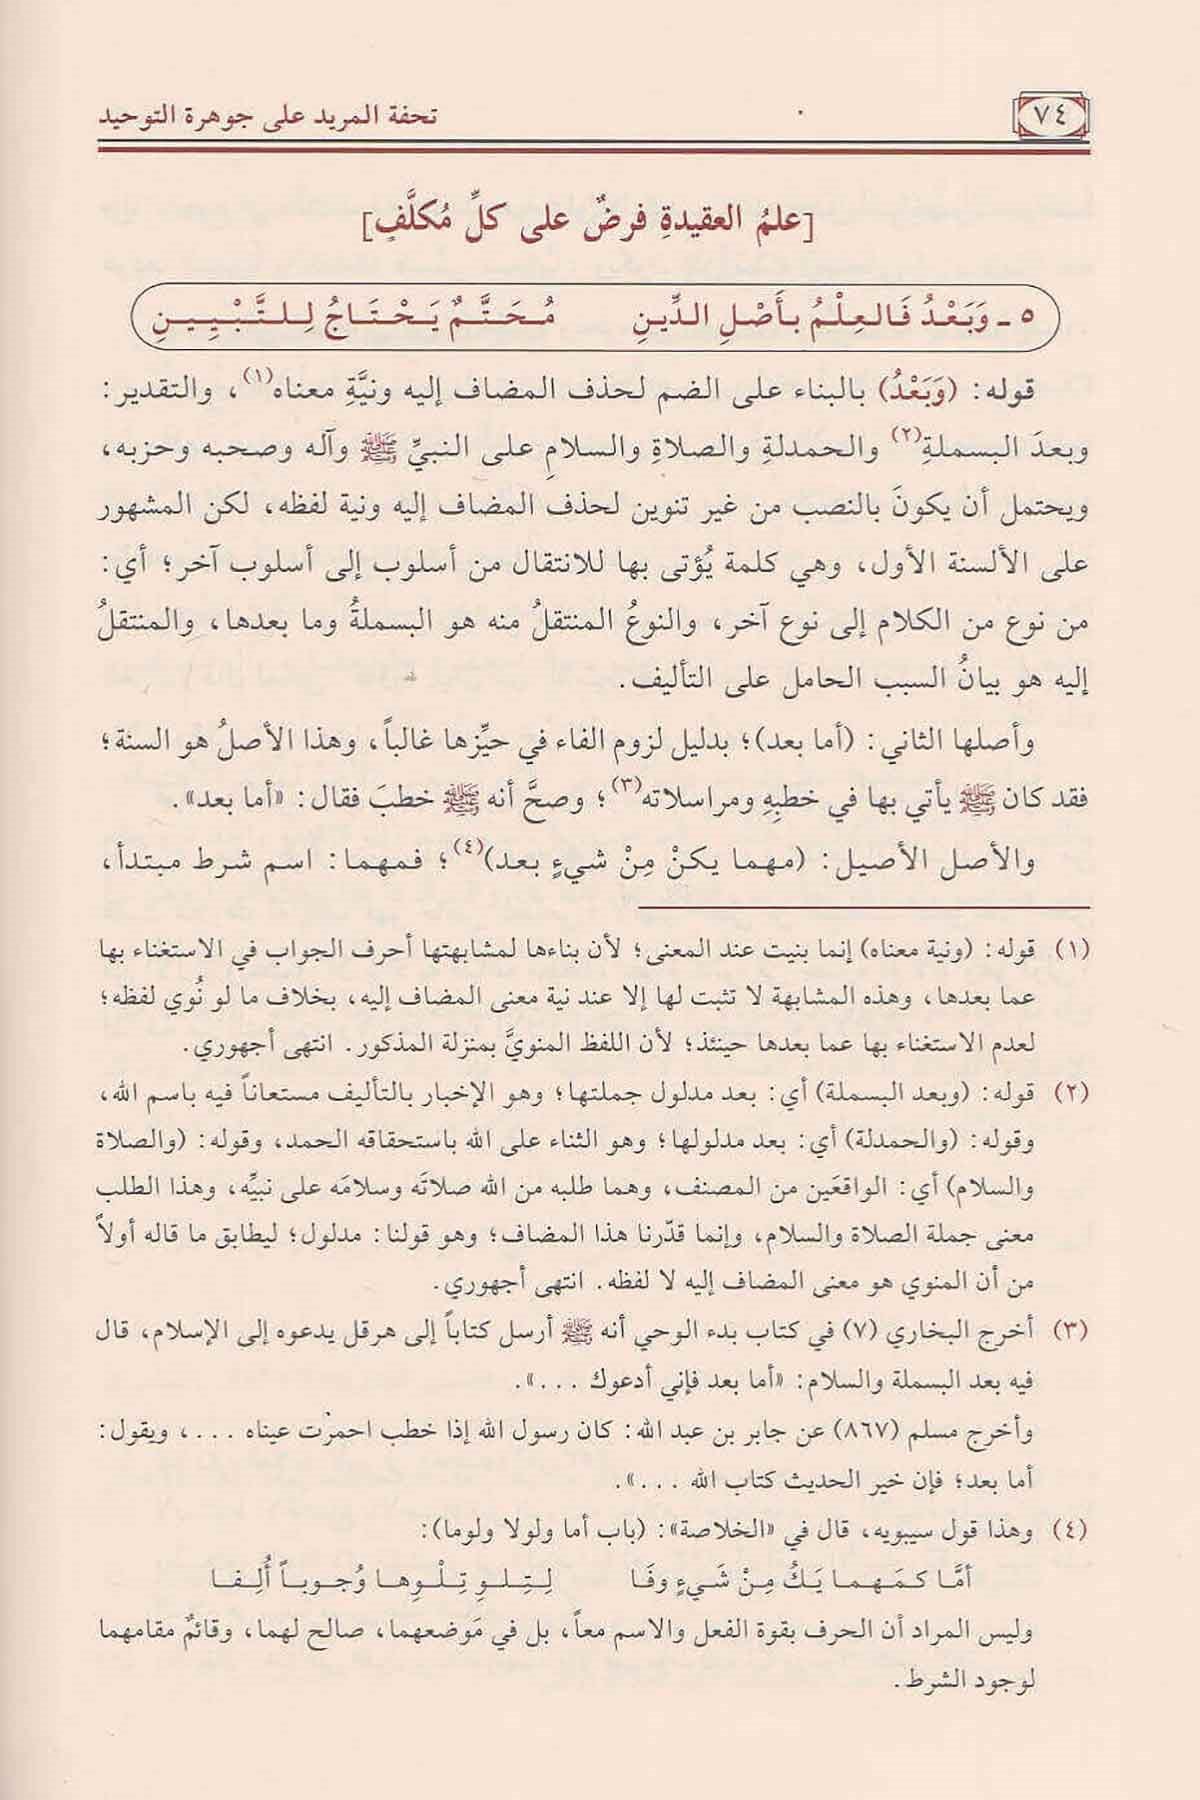 ٧٤
تحفة المريد على جوهرة التوحيد
[علمُ العقيدةِ فرضٌ على كلِّ مُكلَّفٍ]
٥ ـ وَبَعْدُ فَالعِلْمُ بأَصْلِ الدِّينِ مُحَتَّمٌ يَحْتَاجُ لِلتَّبْيِينِ
قوله: (وَبَعْدُ) بالبناء على الضم لحذف المضاف إليه ونيَّةِ معناه(١)، والتقدير:
وبعدَ البسملةِ(٢) والحمدلةِ والصلاةِ والسلامِ على النبيِّ ﷺ وآله وصحبه وحزبه،
ويحتمل أن يكونَ بالنصب من غير تنوين لحذف المضاف إليه ونية لفظه، لكن المشهور
على الألسنة الأول، وهي كلمة يُؤتى بها للانتقال من أسلوب إلى أسلوب آخر؛ أي:
من نوع من الكلام إلى نوع آخر، والنوعُ المنتقلُ منه هو البسملةُ وما بعدها، والمنتقلُ
إليه هو بيانُ السبب الحامل على التأليف.
وأصلها الثاني: (أما بعد)؛ بدليل لزوم الفاء في حيِّزها غالباً، وهذا الأصلُ هو السنة؛
فقد كان ﷺ يأتي بها في خطبِهِ ومراسلاته(٣)؛ وصحَّ أنه ﷺ خطبَ فقال: «أما بعد».
والأصل الأصيل: (مهما يكنْ مِنْ شيءٍ بعد)(٤)؛ فمهما: اسم شرط مبتدأ،
(١) قوله: (ونية معناه) إنما بنيت عند المعنى؛ لأن بناءها لمشابهتها أحرف الجواب في الاستغناء بها
عما بعدها، وهذه المشابهة لا تثبت لها إلا عند نية معنى المضاف إليه، بخلاف ما لو نُوي لفظه؛
لعدم الاستغناء بها عما بعدها حينئذ؛ لأن اللفظ المنويَّ بمنزلة المذكور. انتهى أجهوري.
(٢) قوله: (وبعد البسملة) أي: بعد مدلول جملتها؛ وهو الإخبار بالتأليف مستعاناً فيه باسم الله،
وقوله: (والحمدلة) أي: بعد مدلولها؛ وهو الثناء على الله باستحقاقه الحمد، وقوله: (والصلاة
والسلام) أي: الواقعَين من المصنف، وهما طلبه من الله صلاتَه وسلامَه على نبيِّه، وهذا الطلب
معنى جملة الصلاة والسلام، وإنما قدّرنا هذا المضاف؛ وهو قولنا: مدلول؛ ليطابق ما قاله أولاً
من أن المنوي هو معنى المضاف إليه لا لفظه. انتهى أجهوري.
(٣) أخرج البخاري (٧) في كتاب بدء الوحي أنه ﷺ أرسل كتاباً إلى هرقل يدعوه إلى الإسلام، قال
فيه بعد البسملة والسلام: «أما بعد فإني أدعوك ...».
وأخرج مسلم (٨٦٧) عن جابر بن عبد الله: كان رسول الله إذا خطب احمرّت عيناه ...، ويقول:
أما بعد؛ فإن خير الحديث كتاب الله ...».
(٤) وهذا قول سيبويه، قال في «الخلاصة»: (باب أما ولولا ولوما):
أمَّا كمَهما يَكُ مِنْ شَيءٍ وفَا لِتِلوِ تِلْوِها وُجوباً أُلِفا
وليس المراد أن الحرف بقوة الفعل والاسم معاً، بل في مَوضعهما، صالح لهما، وقائمٌ مقامهما
لوجود الشرط.